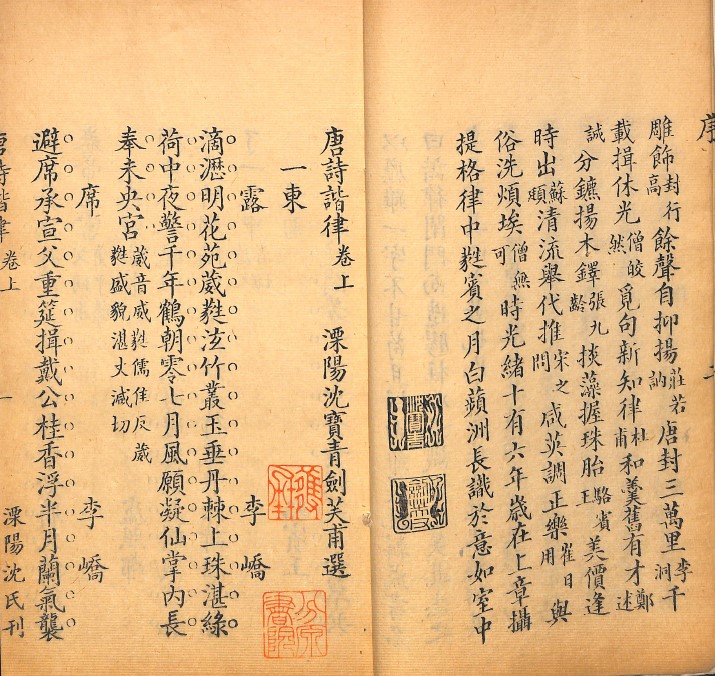 序
雕飾封行高餘聲自抑揚莊若訥唐封三萬里李洞千
載揖休光僧皎然覓句新知律杜甫和羹舊有才鄭述
誠分鑣揚木鐸張九齡掞藻握珠胎駱賓王美價逢
時出蘇頲清流舉代推宋之問咸英調正樂崔日用與
俗洗煩埃僧無可時光緒十有六年歲在上章攝
提格律中蕤賓之月白蘋洲長識於意如室中
唐詩諧律 卷上 溧陽沈寶青劍芙甫選
一東
露 李嶠
滴瀝明花苑葳蕤泫竹叢玉垂丹棘上珠湛綠
荷中夜警千年鶴朝零七月風願凝仙掌內長
奉未央宮葳音威蕤儒隹反葳蕤盛貌湛丈減切
席 李嶠
避席承宣父重筵揖戴公桂香浮半月蘭氣襲
唐詩諧律 卷上 一 溧陽沈氏刊